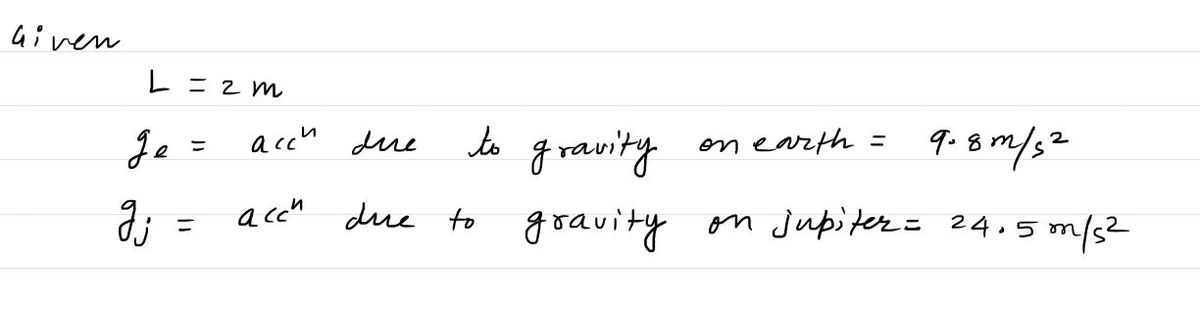 Given
L = 2 m
ge = accn due to gravity on earth = 9.8 m/s2
gj = accn due to gravity on jupiter = 24.5 m/s2